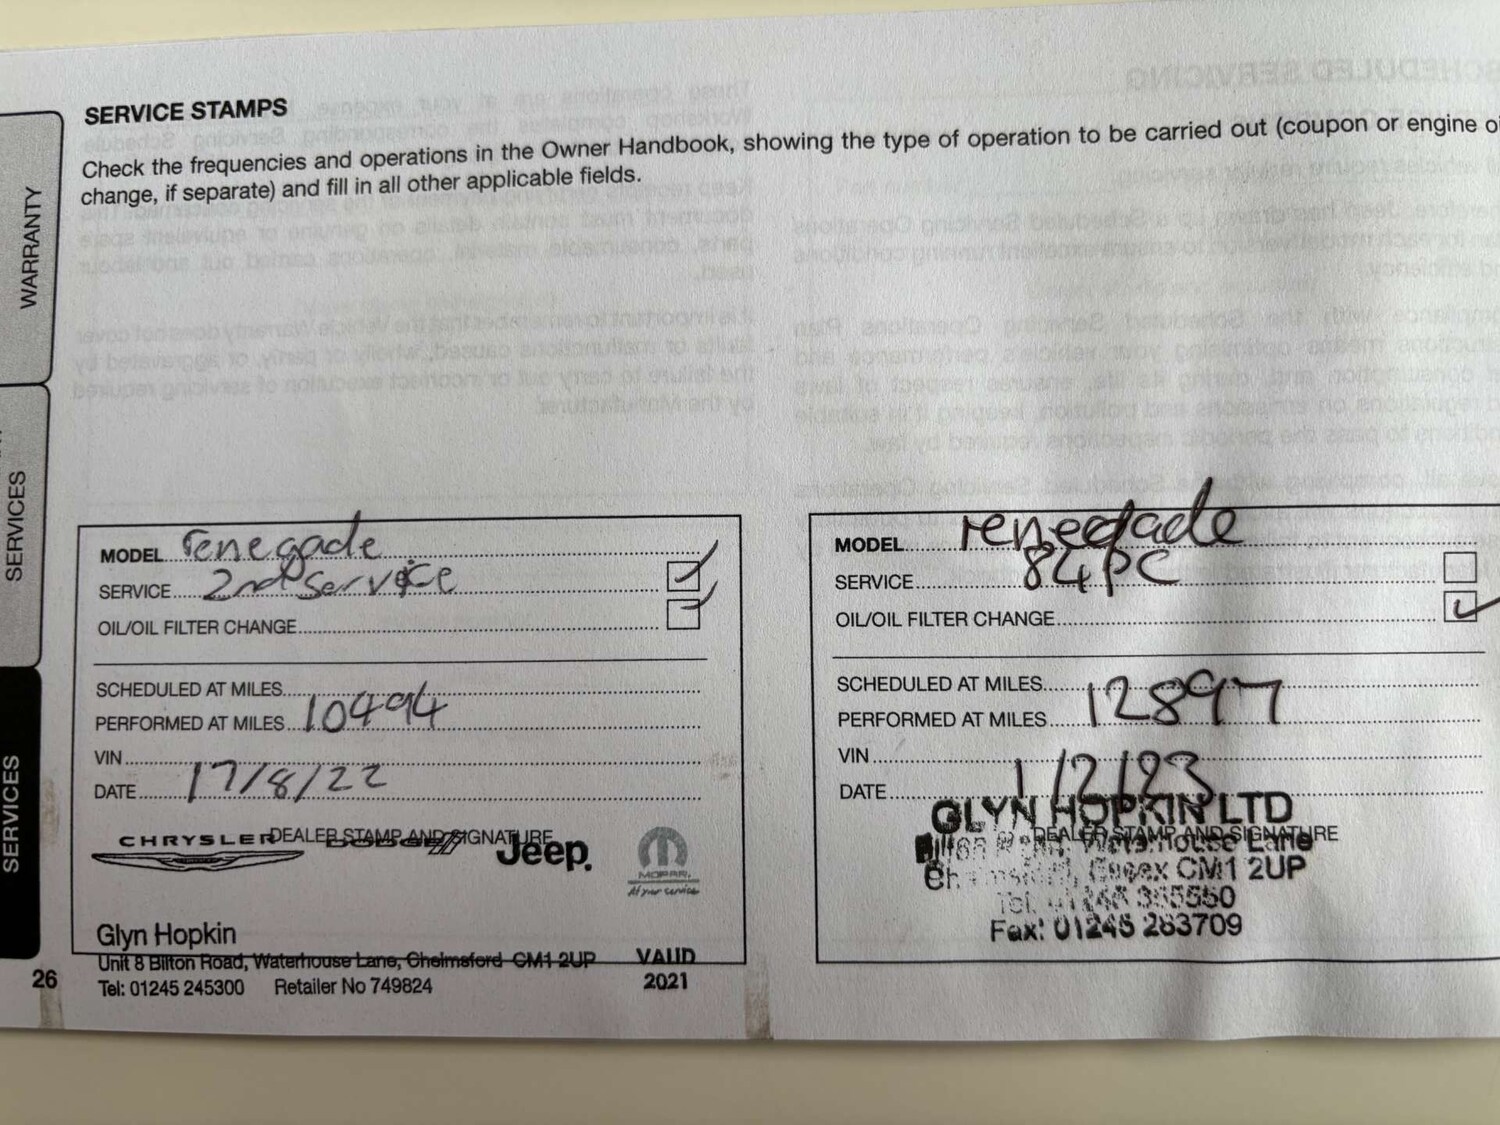 WARRANTY
SERVICES
SERVICES
SERVICE STAMPS
Check the frequencies and operations in the Owner Handbook, showing the type of operation to be carried out (coupon or engine oi
change, if separate) and fill in all other applicable fields.
MODEL renegade
SERVICE 2nd service
OIL/OIL FILTER CHANGE
SCHEDULED AT MILES
PERFORMED AT MILES 10494
VIN
DATE 17/8/22
DEALER STAMP AND SIGNATURE
CHRYSLER DODGE Jeep. MOPAR.
At your service
Glyn Hopkin
Unit 8 Bilton Road, Waterhouse Lane, Chelmsford CM1 2UP
Tel: 01245 245300 Retailer No 749824
VALID
2021
MODEL renegade
SERVICE 84pc
OIL/OIL FILTER CHANGE
SCHEDULED AT MILES
PERFORMED AT MILES 12897
VIN
DATE 1/2/23
DEALER STAMP AND SIGNATURE
GLYN HOPKIN LTD
Bilton Road, Waterhouse Lane
Chelmsford, Essex CM1 2UP
Fax: 01245 263709
26